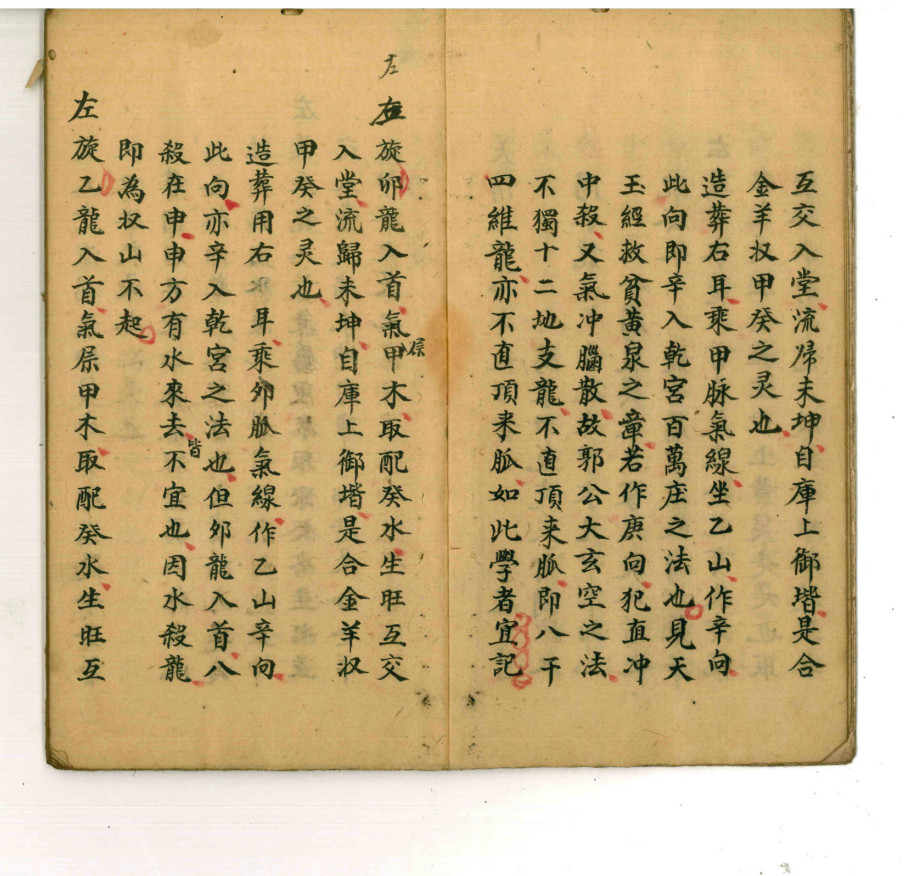 互交入堂流歸未坤自庫上御堦是合
金羊収甲癸之灵也
造葬右耳乘甲脉氣線坐乙山作辛向
此向即辛入乾宮百萬庄之法也見天
玉經救貧黄泉之章若作庚向犯直冲
中殺又氣冲腦散故郭公大玄空之法
不獨十二地支龍不直頂来脈即八干
四維龍亦不直頂来脈如此學者宜記
左
右旋卯龍入首氣屬甲木取配癸水生旺互交
入堂流歸未坤自庫上御堦是合金羊収
甲癸之灵也
造葬用右耳乘卯脈氣線作乙山辛向
此向亦辛入乾宮之法也但卯龍入首八
殺在申申方有水來去皆不宜也因水殺龍
即為収山不起
左旋乙龍入首氣屬甲木取配癸水生旺互